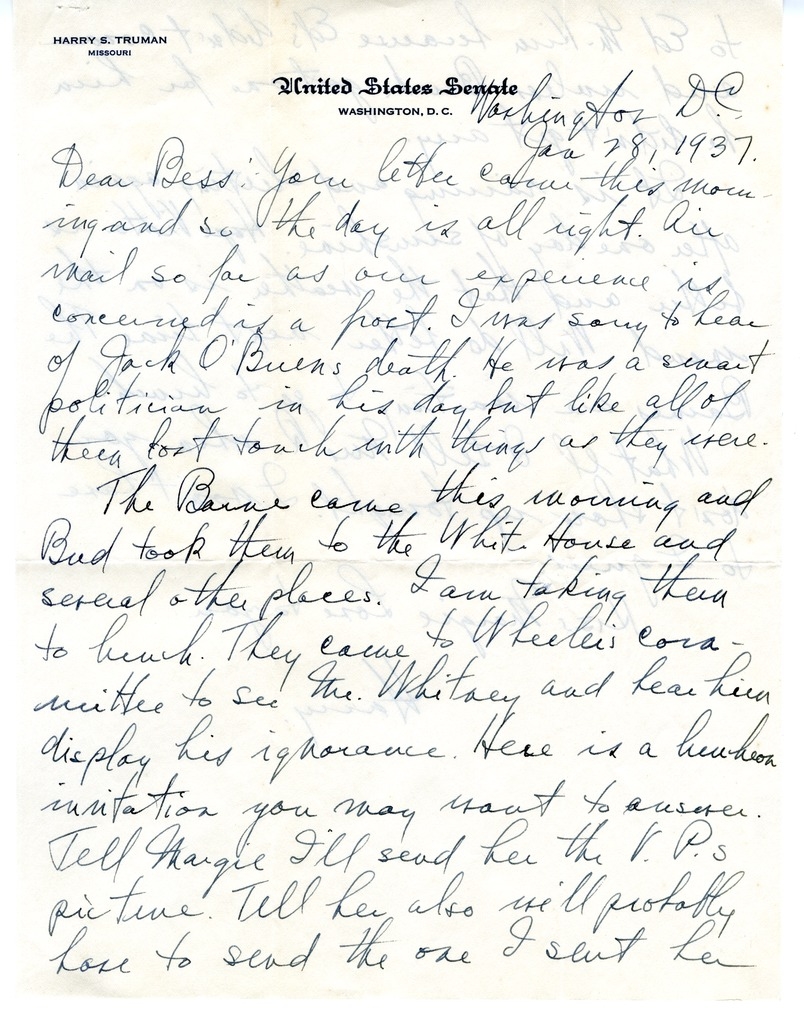 HARRY S. TRUMAN
MISSOURI
United States Senate
WASHINGTON, D. C.
Washington D.C.
Jan 28, 1937.
Dear Bess: Your letter came this morn-
ing and so the day is all right. Air
mail so far as our experience is
concerned is a frost. I was sorry to hear
of Jack O'Briens death. He was a smart
politician in his day but like all of
them lost touch with things as they were.
The came this morning and
Bud took them to the White House and
several other places. I am taking them
to lunch. They came to Wheelers com-
mittee to see Mr. Whitney and hear him
display his ignorance. Here is a luncheon
invitation you may want to answer.
Tell Margie I'll send her the V. P.s
picture. Tell her also will probably
have to send the one I sent her